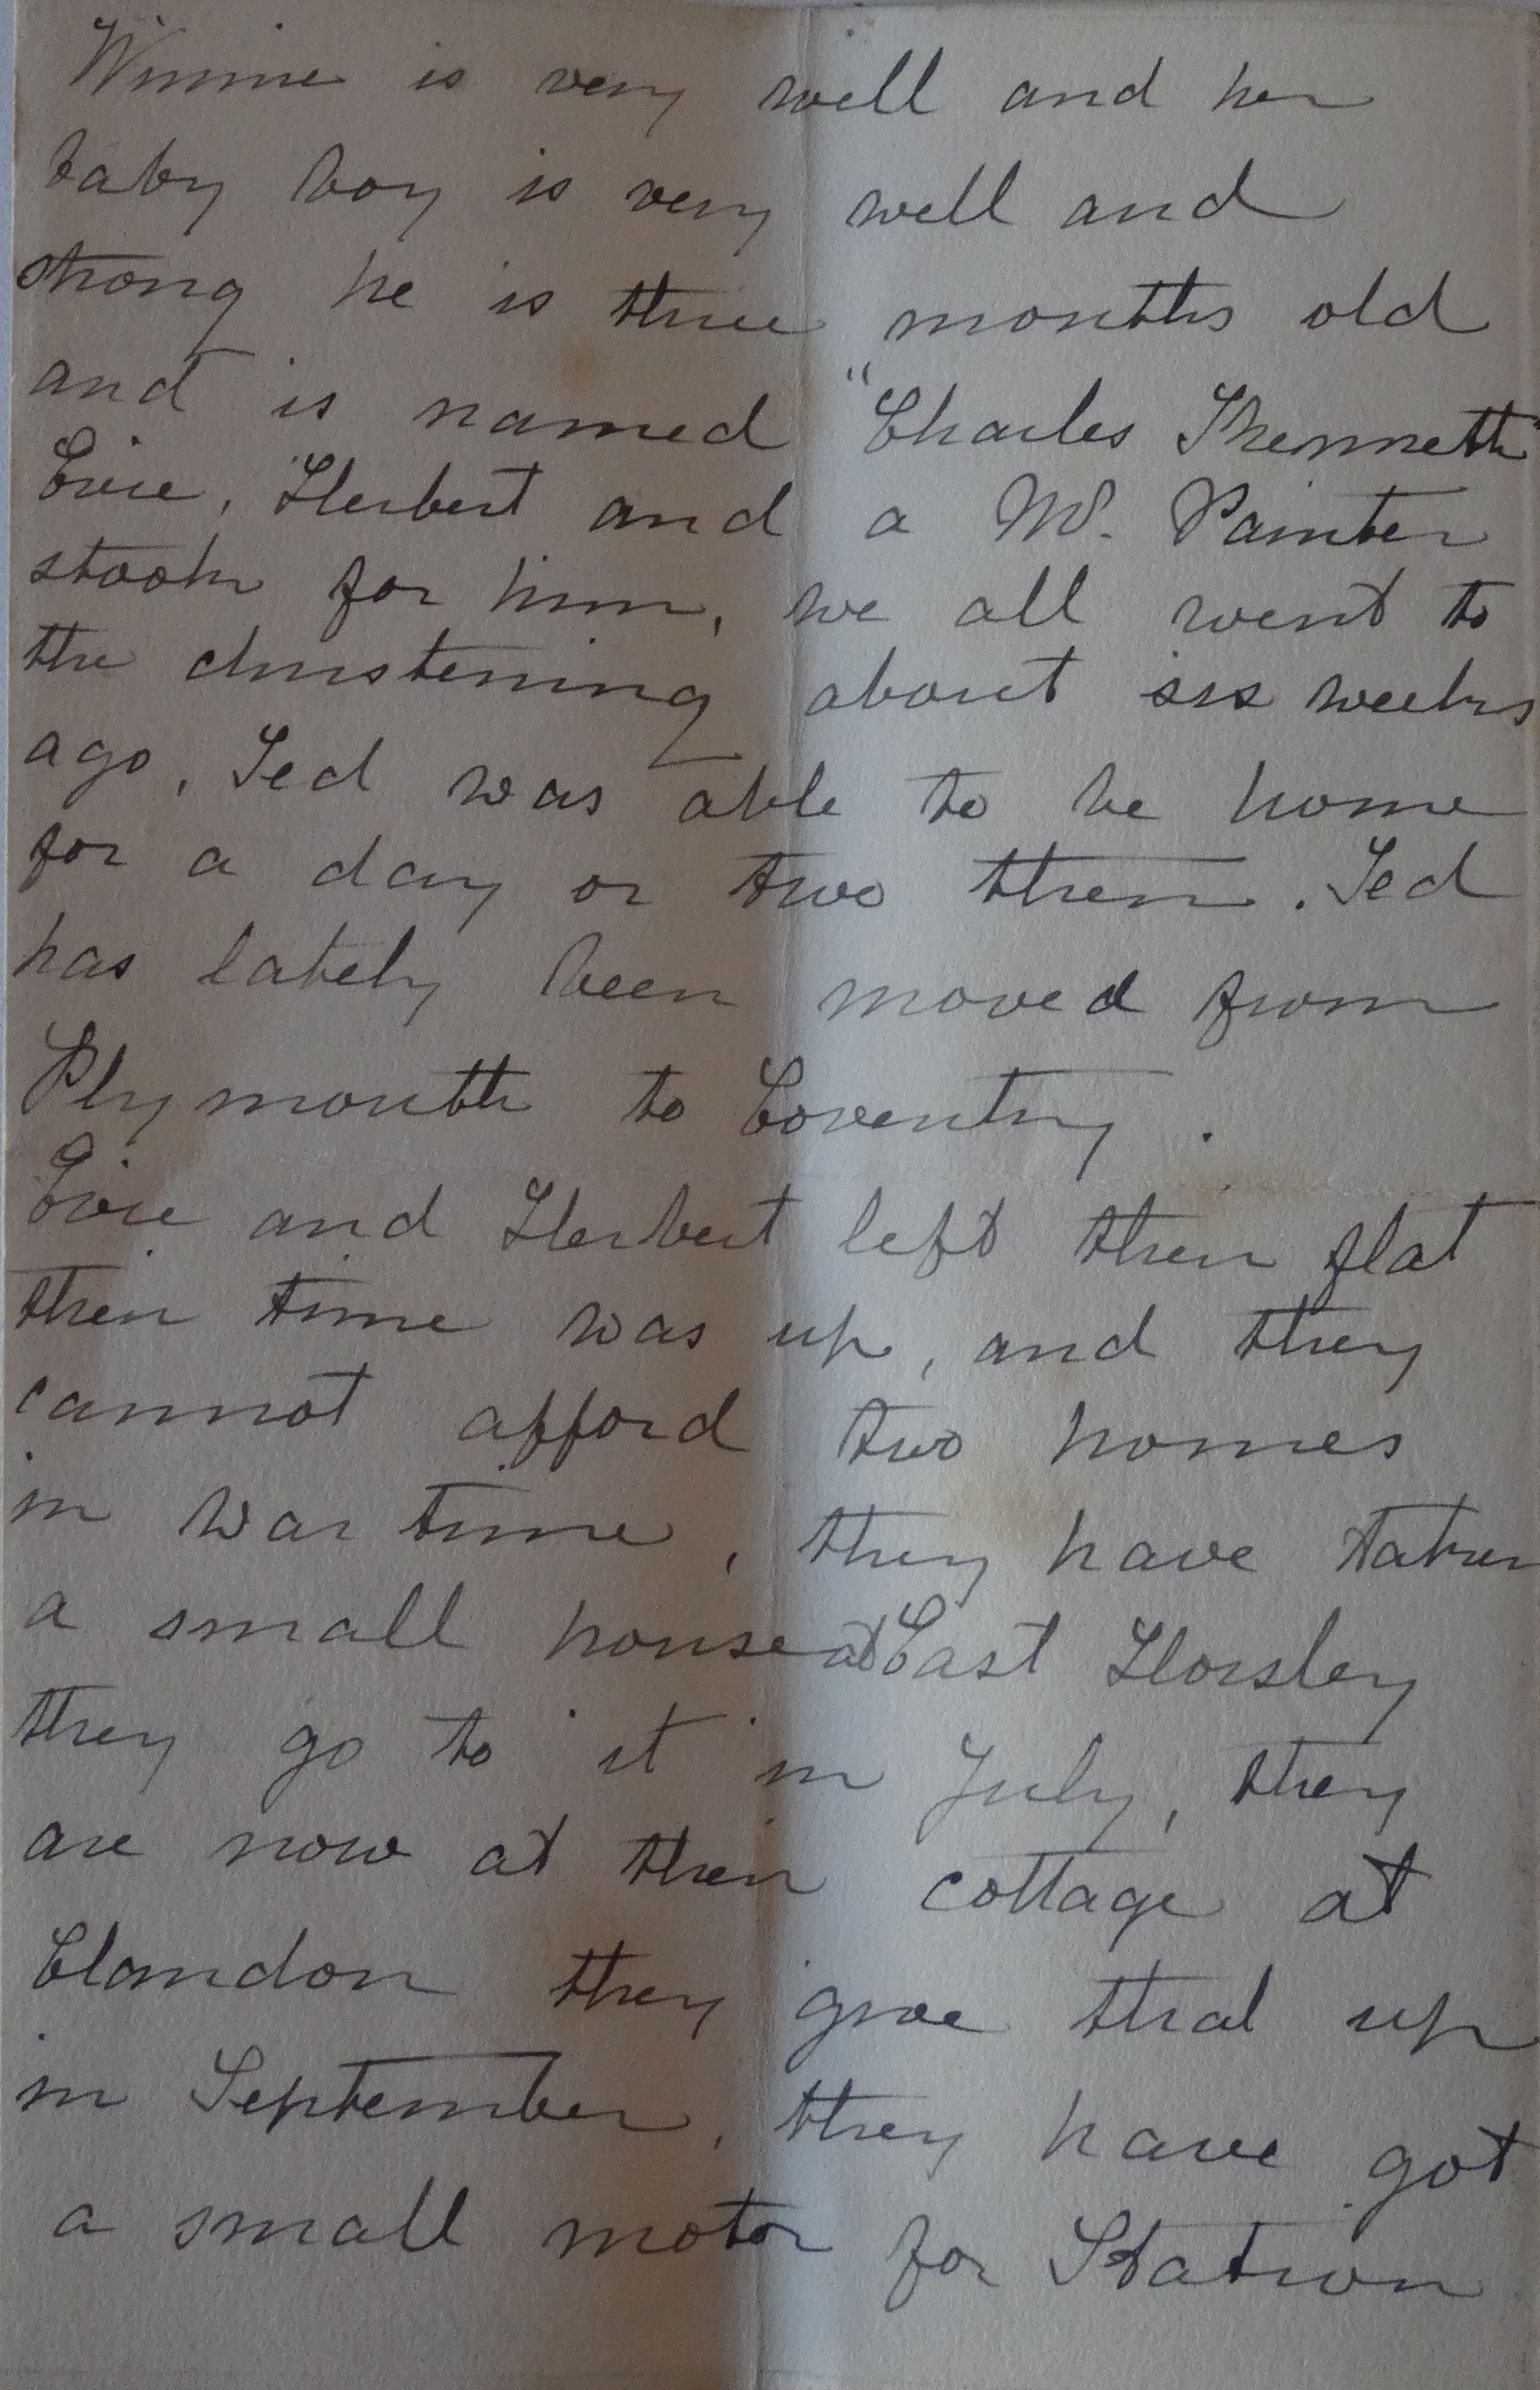 Winnie is very well and her
baby boy is very well and
strong he is three months old
and is named "Charles Kennett"
Evie, Herbert and a Mr. Painter
stook for him, we all went to
the christening about six weeks
ago, Ted was able to be home
for a day or two then. Ted
has lately been moved from
Plymouth to Coventry.
Evie and Herbert left their flat
their time was up, and they
cannot afford two homes
in war time, they have taken
a small house at East Horsley
they go to it in July, they
are now at their cottage at
Clandon they give that up
in September, they have got
a small motor for Station